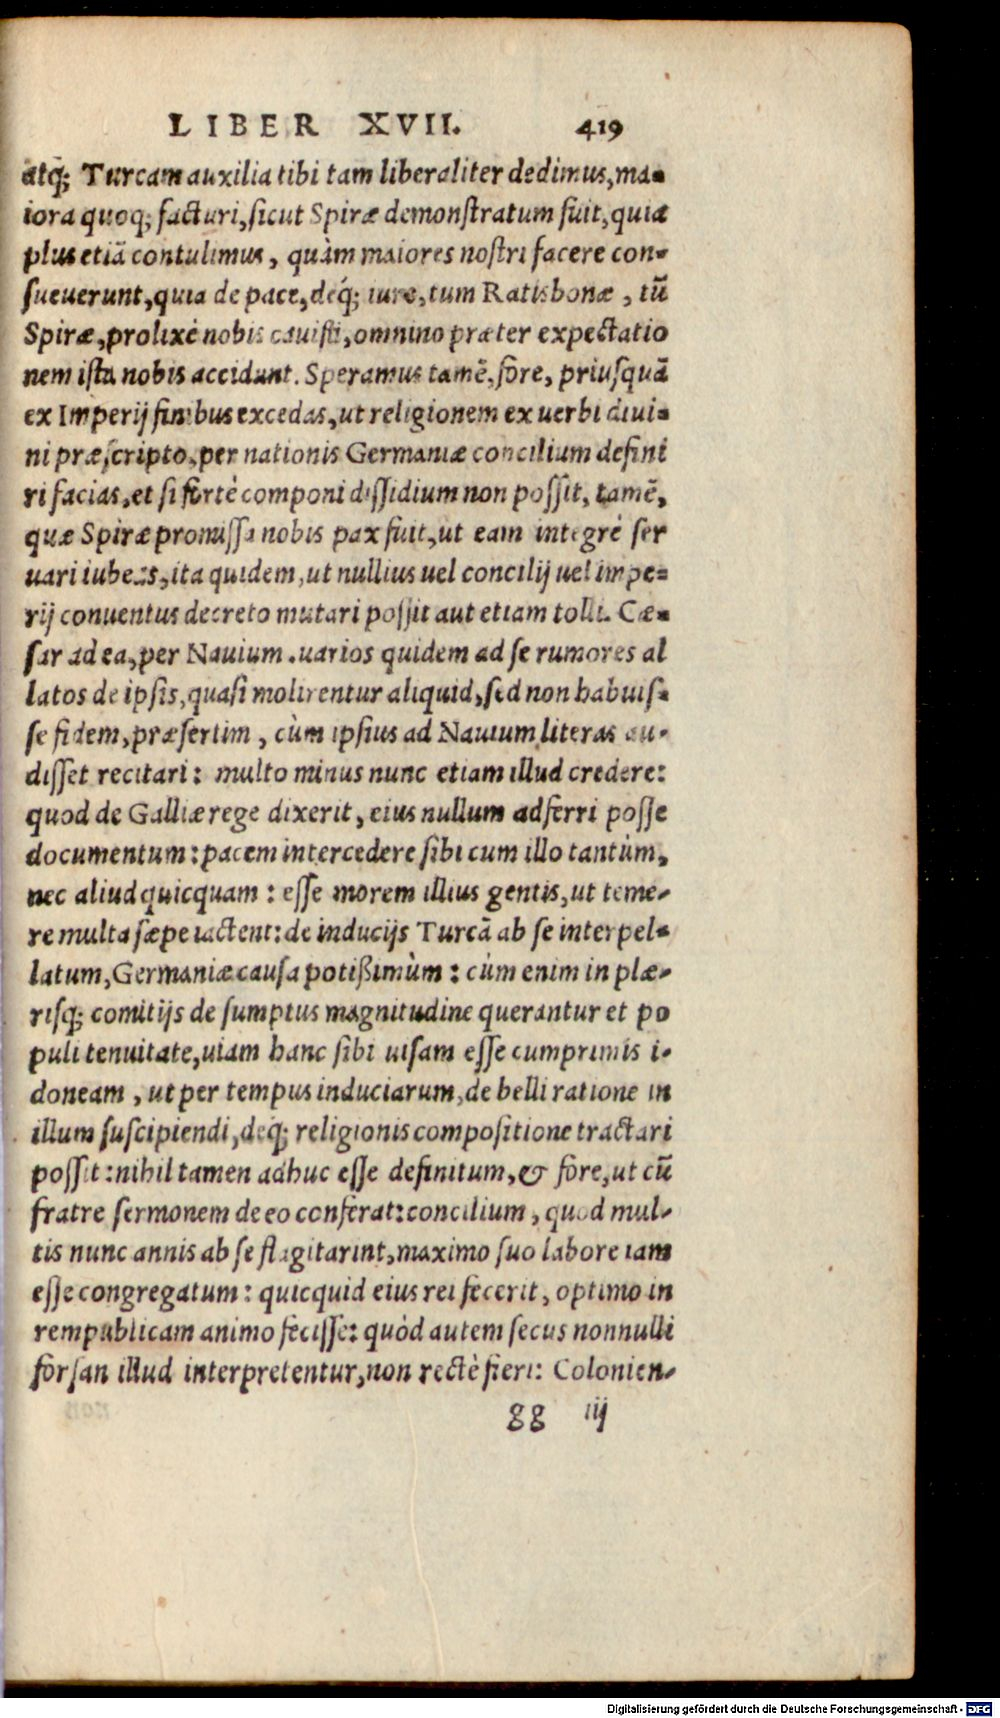 LIBER XVII. 419
atq; Turcam auxilia tibi tam liberaliter dedimus, ma-
iora quoq; facturi, sicut Spiræ demonstratum fuit, quia
plus etiā contulimus, quàm maiores nostri facere con-
sueuerunt, quia de pace, deq́; iure, tum Ratisbonæ, tū
Spiræ, prolixè nobis cauisti, omnino præter expectatio
nem ista nobis accidunt. Speramus tamē, fore, priusquā
ex Imperij finibus excedas, ut religionem ex uerbi diui-
ni præscripto, per nationis Germaniæ concilium defini
ri facias, et si fortè componi dissidium non possit, tamē,
quæ Spiræ promissa nobis pax fuit, ut eam integrè ser
uari iubeas, ita quidem, ut nullius uel concilij uel impe-
rij conuentus decreto mutari possit aut etiam tolli. Cæ-
sar ad ea, per Nauium. uarios quidem ad se rumores al
latos de ipsis, quasi molirentur aliquid, sed non habuis-
se fidem, præsertim, cùm ipsius ad Nauium literas au-
disset recitari: multo minus nunc etiam illud credere:
quod de Galliæ rege dixerit, eius nullum adferri posse
documentum: pacem intercedere sibi cum illo tantùm,
nec aliud quicquam: esse morem illius gentis, ut teme-
re multa sæpe iactent: de inducijs Turcā ab se interpel-
latum, Germaniæ causa potißimùm: cùm enim in plæ-
risq; comitijs de sumptus magnitudine querantur et po
puli tenuitate, uiam hanc sibi uisam esse cumprimis i-
doneam, ut per tempus induciarum, de belli ratione in
illum suscipiendi, deq́; religionis compositione tractari
possit: nihil tamen adhuc esse definitum, & fore, ut cū
fratre sermonem de eo conferat: concilium, quod mul-
tis nunc annis ab se flagitarint, maximo suo labore iam
esse congregatum: quicquid eius rei fecerit, optimo in
rempublicam animo fecisse: quòd autem secus nonnulli
forsan illud interpretentur, non rectè fieri: Colonien-
gg iij
Digitalisierung gefördert durch die Deutsche Forschungsgemeinschaft - DFG